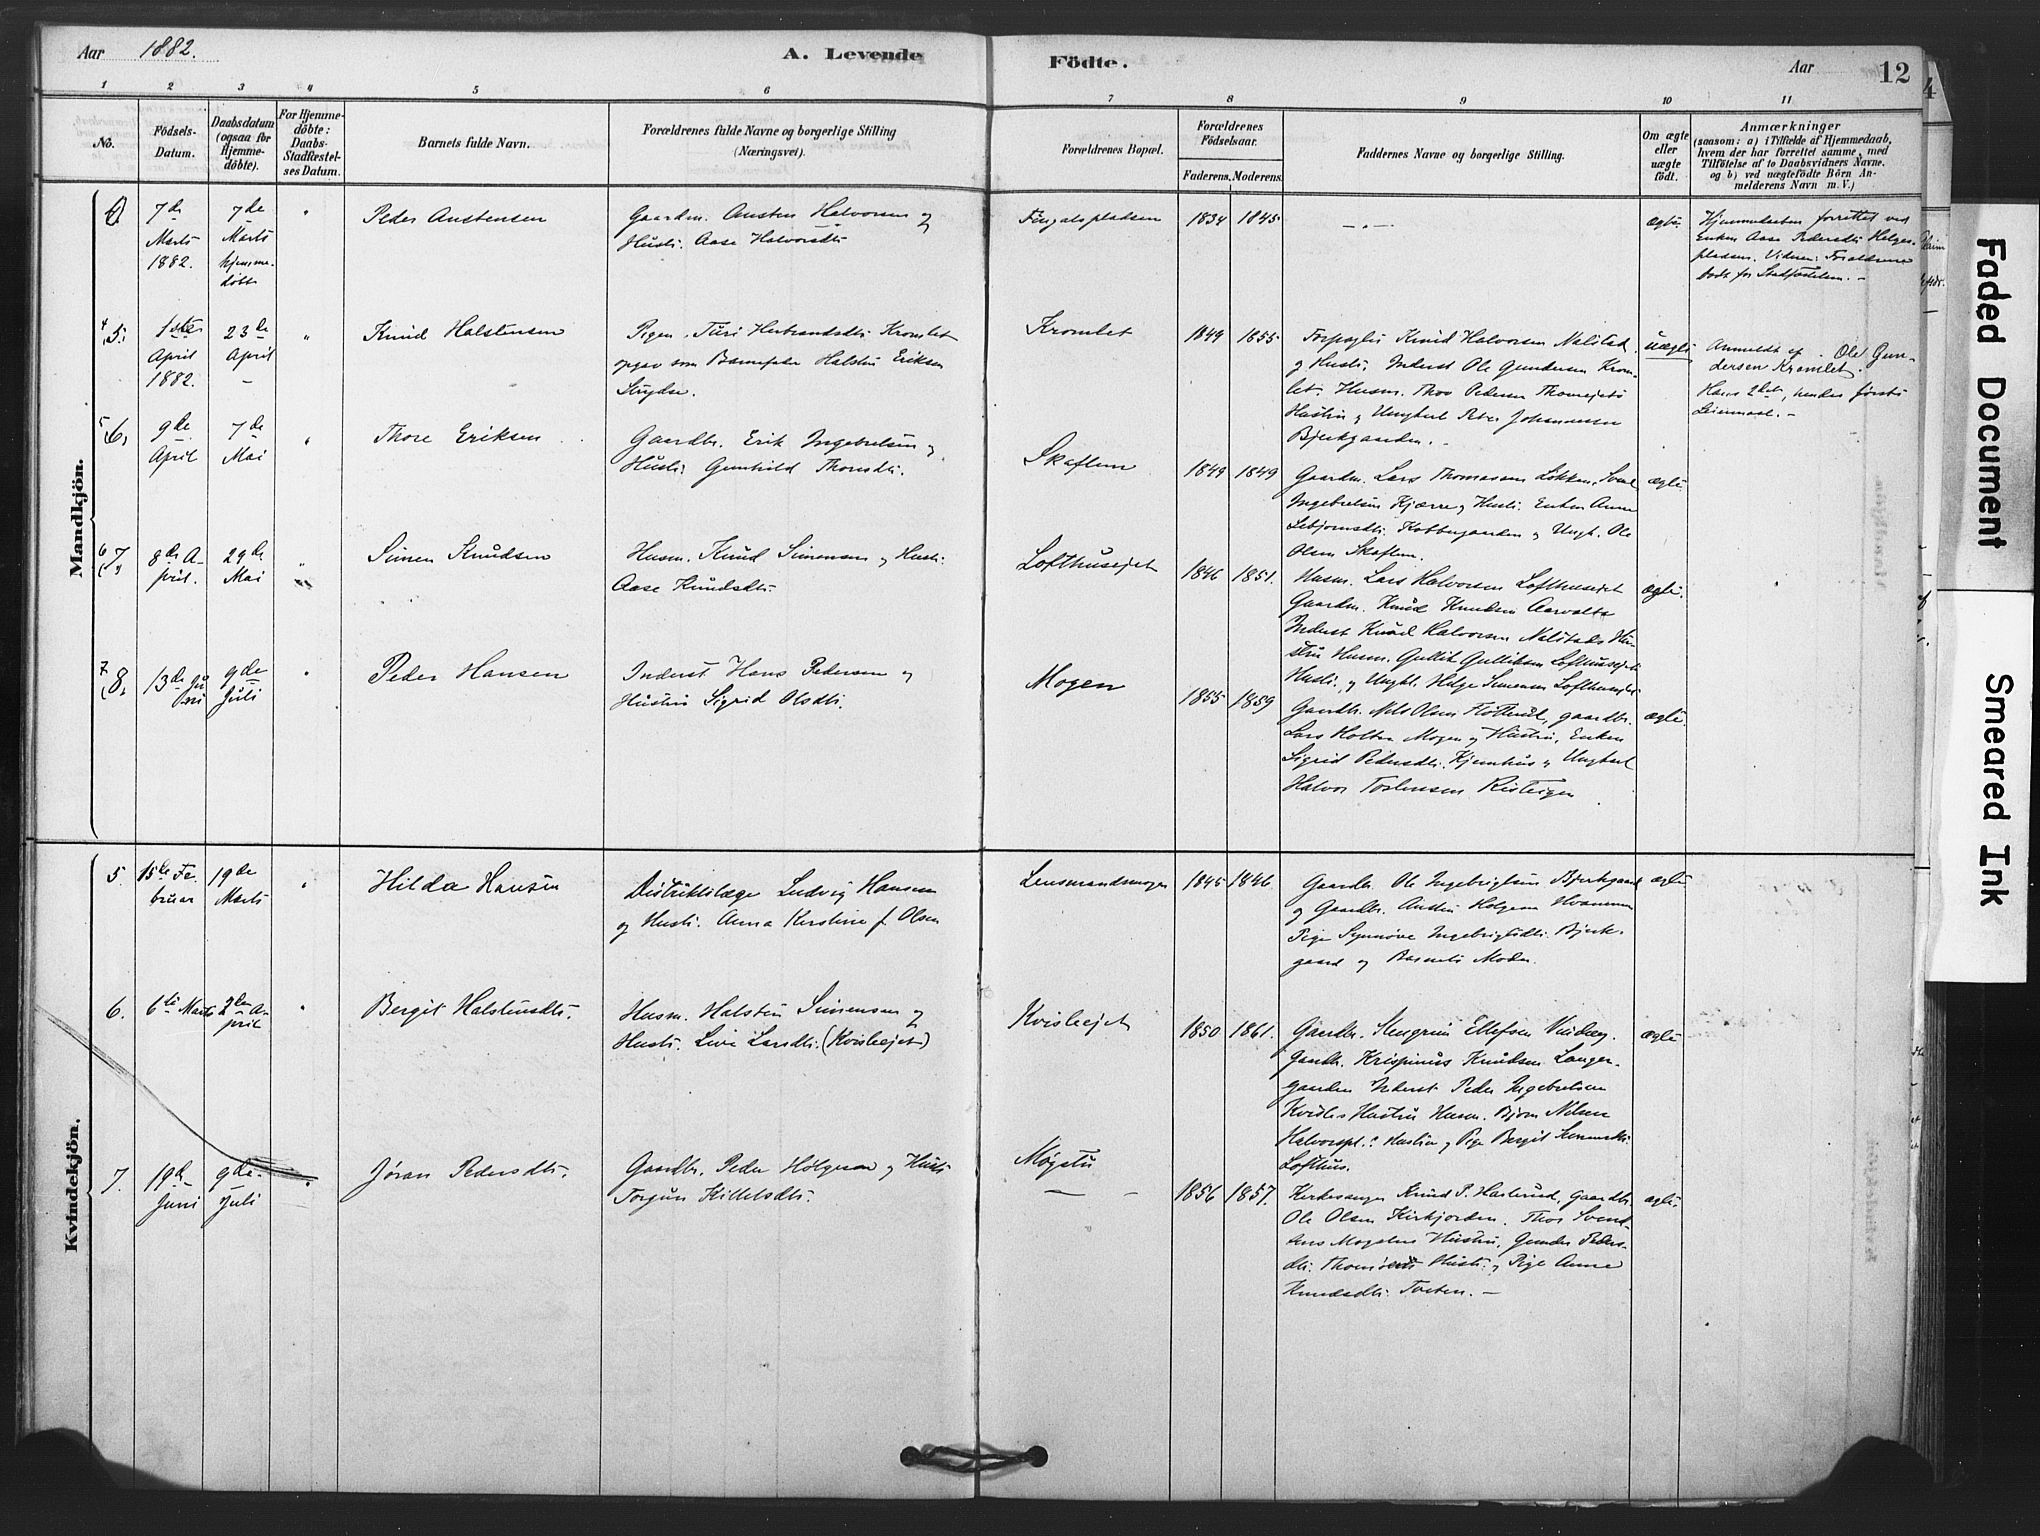 Aar 1882.
A. Levende
Födte.
Aar
12
1 2 3 4 5 6 7 8 9 10 11
No.
Födsels-
Datum.
Daabsdatum
(ogsaa for
Hjemme-
döbte).
For Hjemme-
döbte:
Daabs-
Stadfæstel-
ses Datum.
Barnets fulde Navn.
Forældrenes fulde Navne og borgerlige Stilling
(Næringsvei).
Forældrenes Bopæl.
Forældrenes
Födselsaar.
Faderens. Moderens.
Faddernes Navne og borgerlige Stilling.
Om ægte
eller
uægte
födt.
Anmærkninger
(saasom: a) i Tilfælde af Hjemmedaab,
hvem der har forrettet samme, med
Tilföielse af to Daabsvidners Navne.
og b) ved uægtefödte Börn An-
melderens Navn m. V.)
Mandkjön.
7de
Marts
1882.
7de
Marts
hjemme-
døbt
Peder Austensen
Gaardm. Austen Halvorsen og
Hustr. Aase Halvorsdtr
Fingalspladsen
1834 1845
ægte
Hjemmedaaben forrettet ved
Enken Aase Pedersdtr Helges-
pladsen. Vidner: Forældrene
Dødt før Stadfæstelsen. -
4 5.
1ste
April
1882.
23de
April
-
Knud Halstensen
Pigen Turi Herbrandsdtr Kromlet
opgav som Barnefader Halsten Eriksen
Kromlet
1849 1855
Knud Halvorsen
og Hustr. Inderst Ole Gundersen Krom-
let. Husm. Thov Pedersen
Hustru og Ungkarl Peder Johannesen
Bjerkgaarden. -
uægte
Anmeldt af Ole Gun-
dersen Kromlet.
Hans 2det, hendes første
Leiermaal. -
5 6.
9de
April
7de
Mai
Thore Eriksen
Gaardbr. Erik Ingebretsen og
Hustr. Gunhild Thoresdtr.
Skaflem
1849 1849
Gaardm. Lars Thomassen Løkken,
Ingebretsen Kjærre og Hustr. Enken Anne
og Ungk. Ole
Olsen Skaflem.
ægte
6 7.
8de A-
pril.
29de
Mai
Simen Knudsen
Husm. Knud Simensen og Hustr.
Aase Knudsdtr.
Lofthuseiet
1846 1851.
Husm. Lars Halvorsen Lofthuseiet
Gaardm. Knud Knudsen
Inderst Knud Halvorsen Hu-
stru Husm. Gullik Gulliksen Lofthuseiet
Hustr. og Ungk. Helge Simensen Lofthuseiet
ægte.
7 8.
13de Ju-
ni
9de
Juli
Peder Hansen
Inderst Hans Pedersen og
Hustru Sigrid Olsdtr.
Mogen
1855 1859
Gaardbr. Nils Olsen Flottrud, gaardbr.
Lars Mogen og Hustru, Enken
Sigrid Pedersdtr. Kjemhus og Ungkarl
Halvor Torstensen
ægte.
Kvindekjön.
5.
15de Fe-
bruar
19de
Marts
Hilda Hansen
Distriktslæge Ludvig Hansen
og Hustr. Anna Kerstine f. Olsen
Lensmandsmogen
1845 1846.
Gaardbr. Ole Ingebrigtsen Bjerkgaard
og Gaardbr. Austen Helgesen
Pige Synnøve Ingebrigtsdtr. Bjerk-
gaard og Barnets Moder.
ægte
6.
6te Marts
2den A-
pril
Bergit Halstensdtr.
Husm. Halsten Simensen og
Hustr. Live Larsdtr. (Kvisleejet)
Kvisleejet
1850 1861.
Gaardbr. Stengrim Ellefsen
Gaardbr. Krispinus Knudsen Langer-
gaarden Inderst Peder Ingebretsen
Kvisles Hustru Husm. Bjørn Nilsen
Halvorspl.s Hustru og Pige Bergit Simensdtr.
Lofthus.
ægte
7.
19de
Juni
9de
Juli
Jøran Pedersdtr.
Gaardbr. Peder Helgesen og Hustr.
Torgun Kittelsdtr.
Møgstu
— -
1856 1857.
Kirkesanger Knud P. Haslerud, Gaardbr.
Ole Olsen Kirkjorden. Thor Svend-
sens Hustru, Gunder Peders-
Hustr. og Pige Anne
Knudsdtr. Toeten. -
ægte.
Faded Document
Smeared Ink